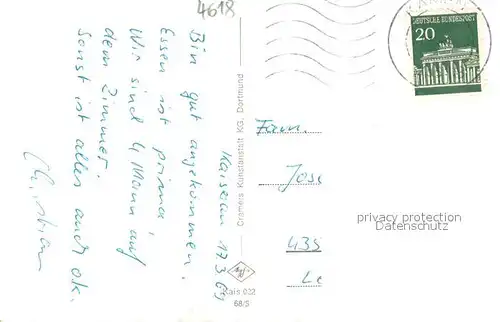 4618
Kaiserau 17.3.69
Bin gut angekommen.
Essen ist prima,
Wir sind 4 Mann auf
dem Zimmer.
Sonst ist alles auch ok.
Christian
Cramers Kunstanstalt KG. Dortmund
Kais 022
68/5
DEUTSCHE BUNDESPOST
20
Fam.
Jose
435
privacy protection
Datenschutz